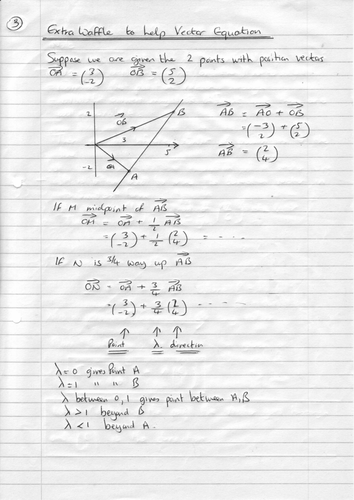 ③
Extra Waffle to help Vector Equation
Suppose we are given the 2 points with position vectors
OA = (3 -2) OB = (5 2)
2
B
OB
3
5
-2
OA
A
AB = AO + OB
= (-3 2) + (5 2)
AB = (2 4)
If M midpoint of AB
OM = OA + 1/2 AB
= (3 -2) + 1/2 (2 4) = - - - -
If N is 3/4 way up AB
ON = OA + 3/4 AB
= (3 -2) + 3/4 (2 4) - - - -
↑ ↑ ↑
Point λ direction
λ=0 gives Point A
λ=1 " " B
λ between 0,1 gives point between A,B
λ>1 beyond B
λ<1 beyond A.